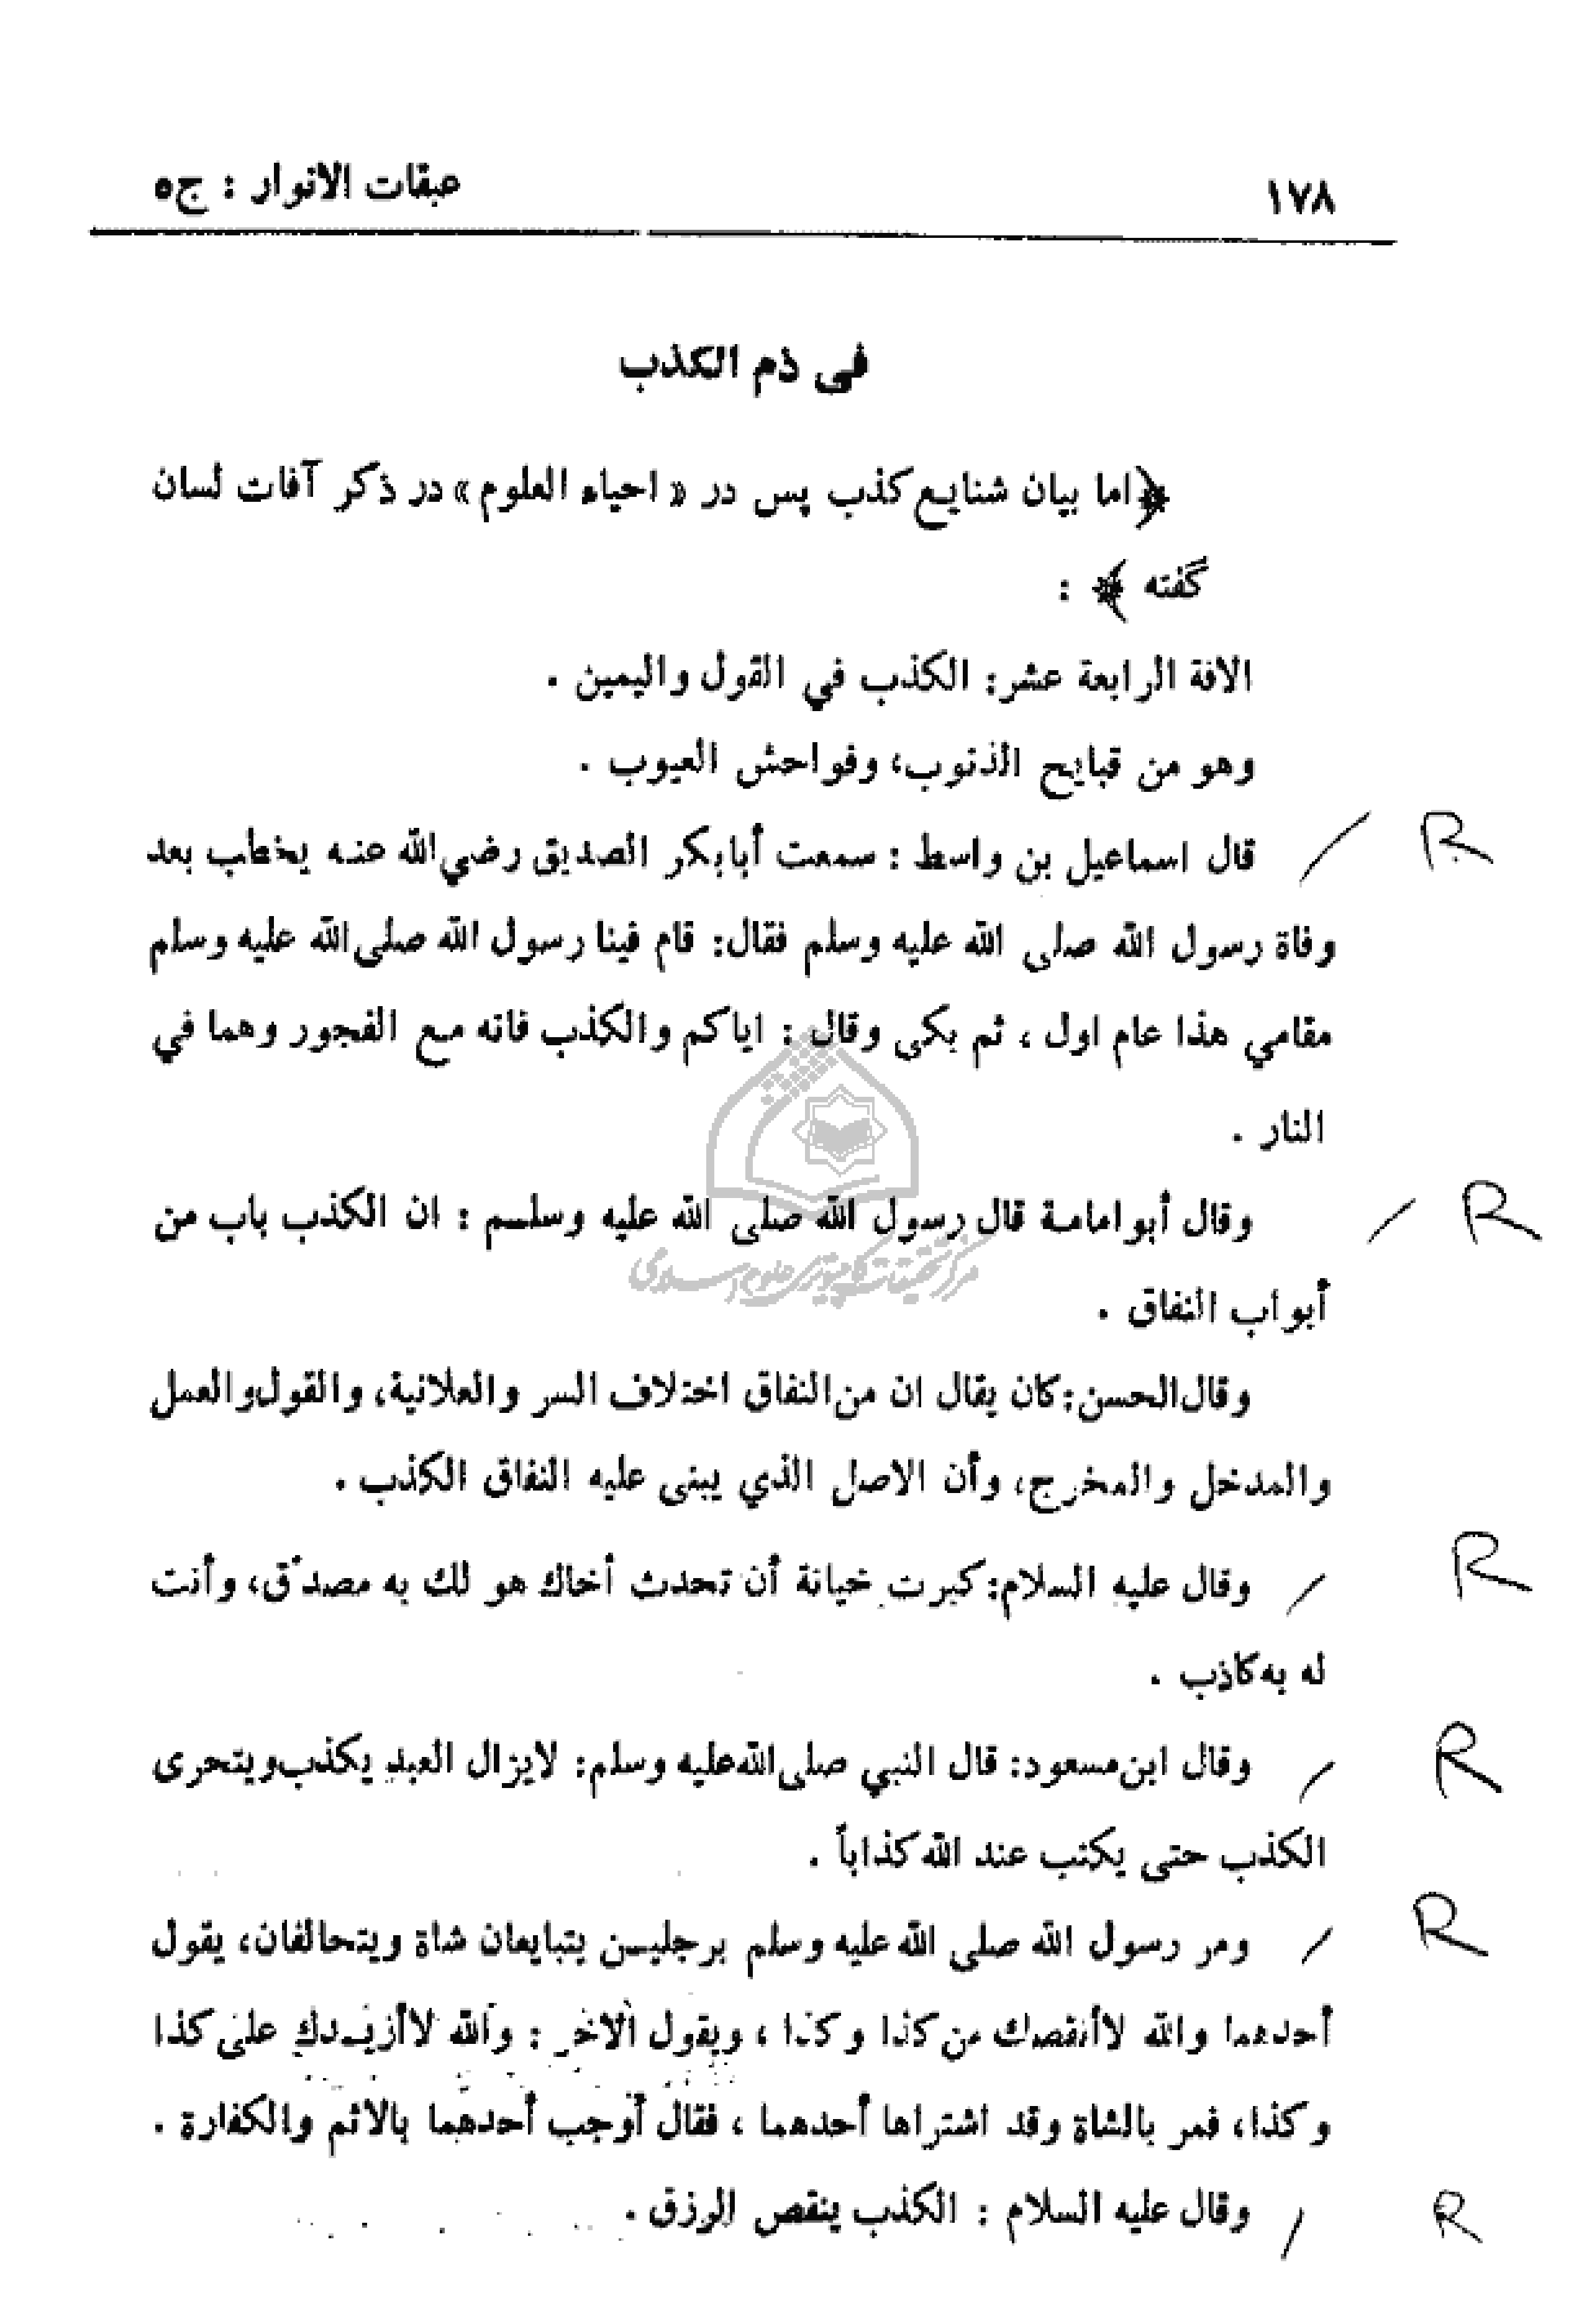 ١٧٨ عبقات الانوار : ج٥
فى ذم الكذب
﴿اما بيان شنايع كذب پس در « احياء العلوم » در ذكر آفات لسان
گفته ﴾ :
الافة الرابعة عشر: الكذب في القول واليمين .
وهو من قبايح الذنوب، وفواحش العيوب .
قال اسماعيل بن واسط : سمعت أبابكر الصديق رضي الله عنه يخطب بعد R
وفاة رسول الله صلى الله عليه وسلم فقال: قام فينا رسول الله صلى الله عليه وسلم
مقامي هذا عام اول ، ثم بكى وقال : اياكم والكذب فانه مع الفجور وهما في
النار .
وقال أبو امامة قال رسول الله صلى الله عليه وسلم : ان الكذب باب من R
مركز تحقيقات كامپيوترى علوم اسلامى
أبواب النفاق .
وقال الحسن: كان يقال ان من النفاق اختلاف السر والعلانية، والقول والعمل
والمدخل والمخرج، وأن الاصل الذي يبنى عليه النفاق الكذب .
وقال عليه السلام: كبرت خيانة أن تحدث أخاك هو لك به مصدّق، وأنت R
له به كاذب .
وقال ابن مسعود: قال النبي صلى الله عليه وسلم: لايزال العبد يكذب ويتحرى R
الكذب حتى يكتب عند الله كذاباً .
ومر رسول الله صلى الله عليه وسلم برجلين يتبايعان شاة ويتحالفان، يقول R
أحدهما والله لاأنقصك من كذا وكذا ، ويقول الاخر : والله لاأزيدك على كذا
وكذا، فمر بالشاة وقد اشتراها أحدهما ، فقال أوجب أحدهما بالاثم والكفارة .
وقال عليه السلام : الكذب ينقص الرزق . R